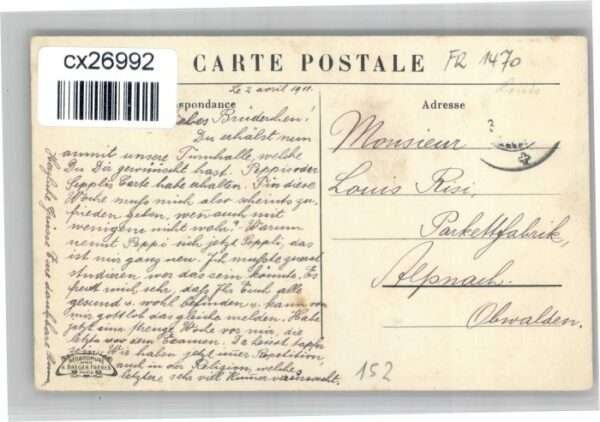 cx26992
CARTE POSTALE
FR 1470
Le 2 avril 1911.
spondance
Adresse
Liebes Brüderchen!
Du erhälst nun
anmit unsere Turnhalle, welche
Du Dir gewünscht hast. Peppi oder
Seppli's Carte habe erhalten. Für diese
Woche muß mich also scheints zu-
frieden geben, wenn auch mit
wenigem nicht wahr? Warum
nennt Peppi sich jetzt Seppli, das
ist mir ganz neu. Ich mußte zuerst
studieren wer das sein könnte. Es
freut mich sehr, daß Ihr Euch alle
gesund u. wohl befinden u. kann von
mir gottlob das gleiche melden. Habe
jetzt eine strenge Woche vor mir, die
letzte vor dem Examen. Da heisst tapfer
Wir haben jetzt immer Repetition,
auch in der Religion, welche
letztere sehr viel Kummer verursacht.
Herzliche Grüsse Eure dankbare
Monsieur
Louis Risi,
Parkettfabrik,
Alpnach.
Obwalden.
152
D'ALEUX FRÈRES